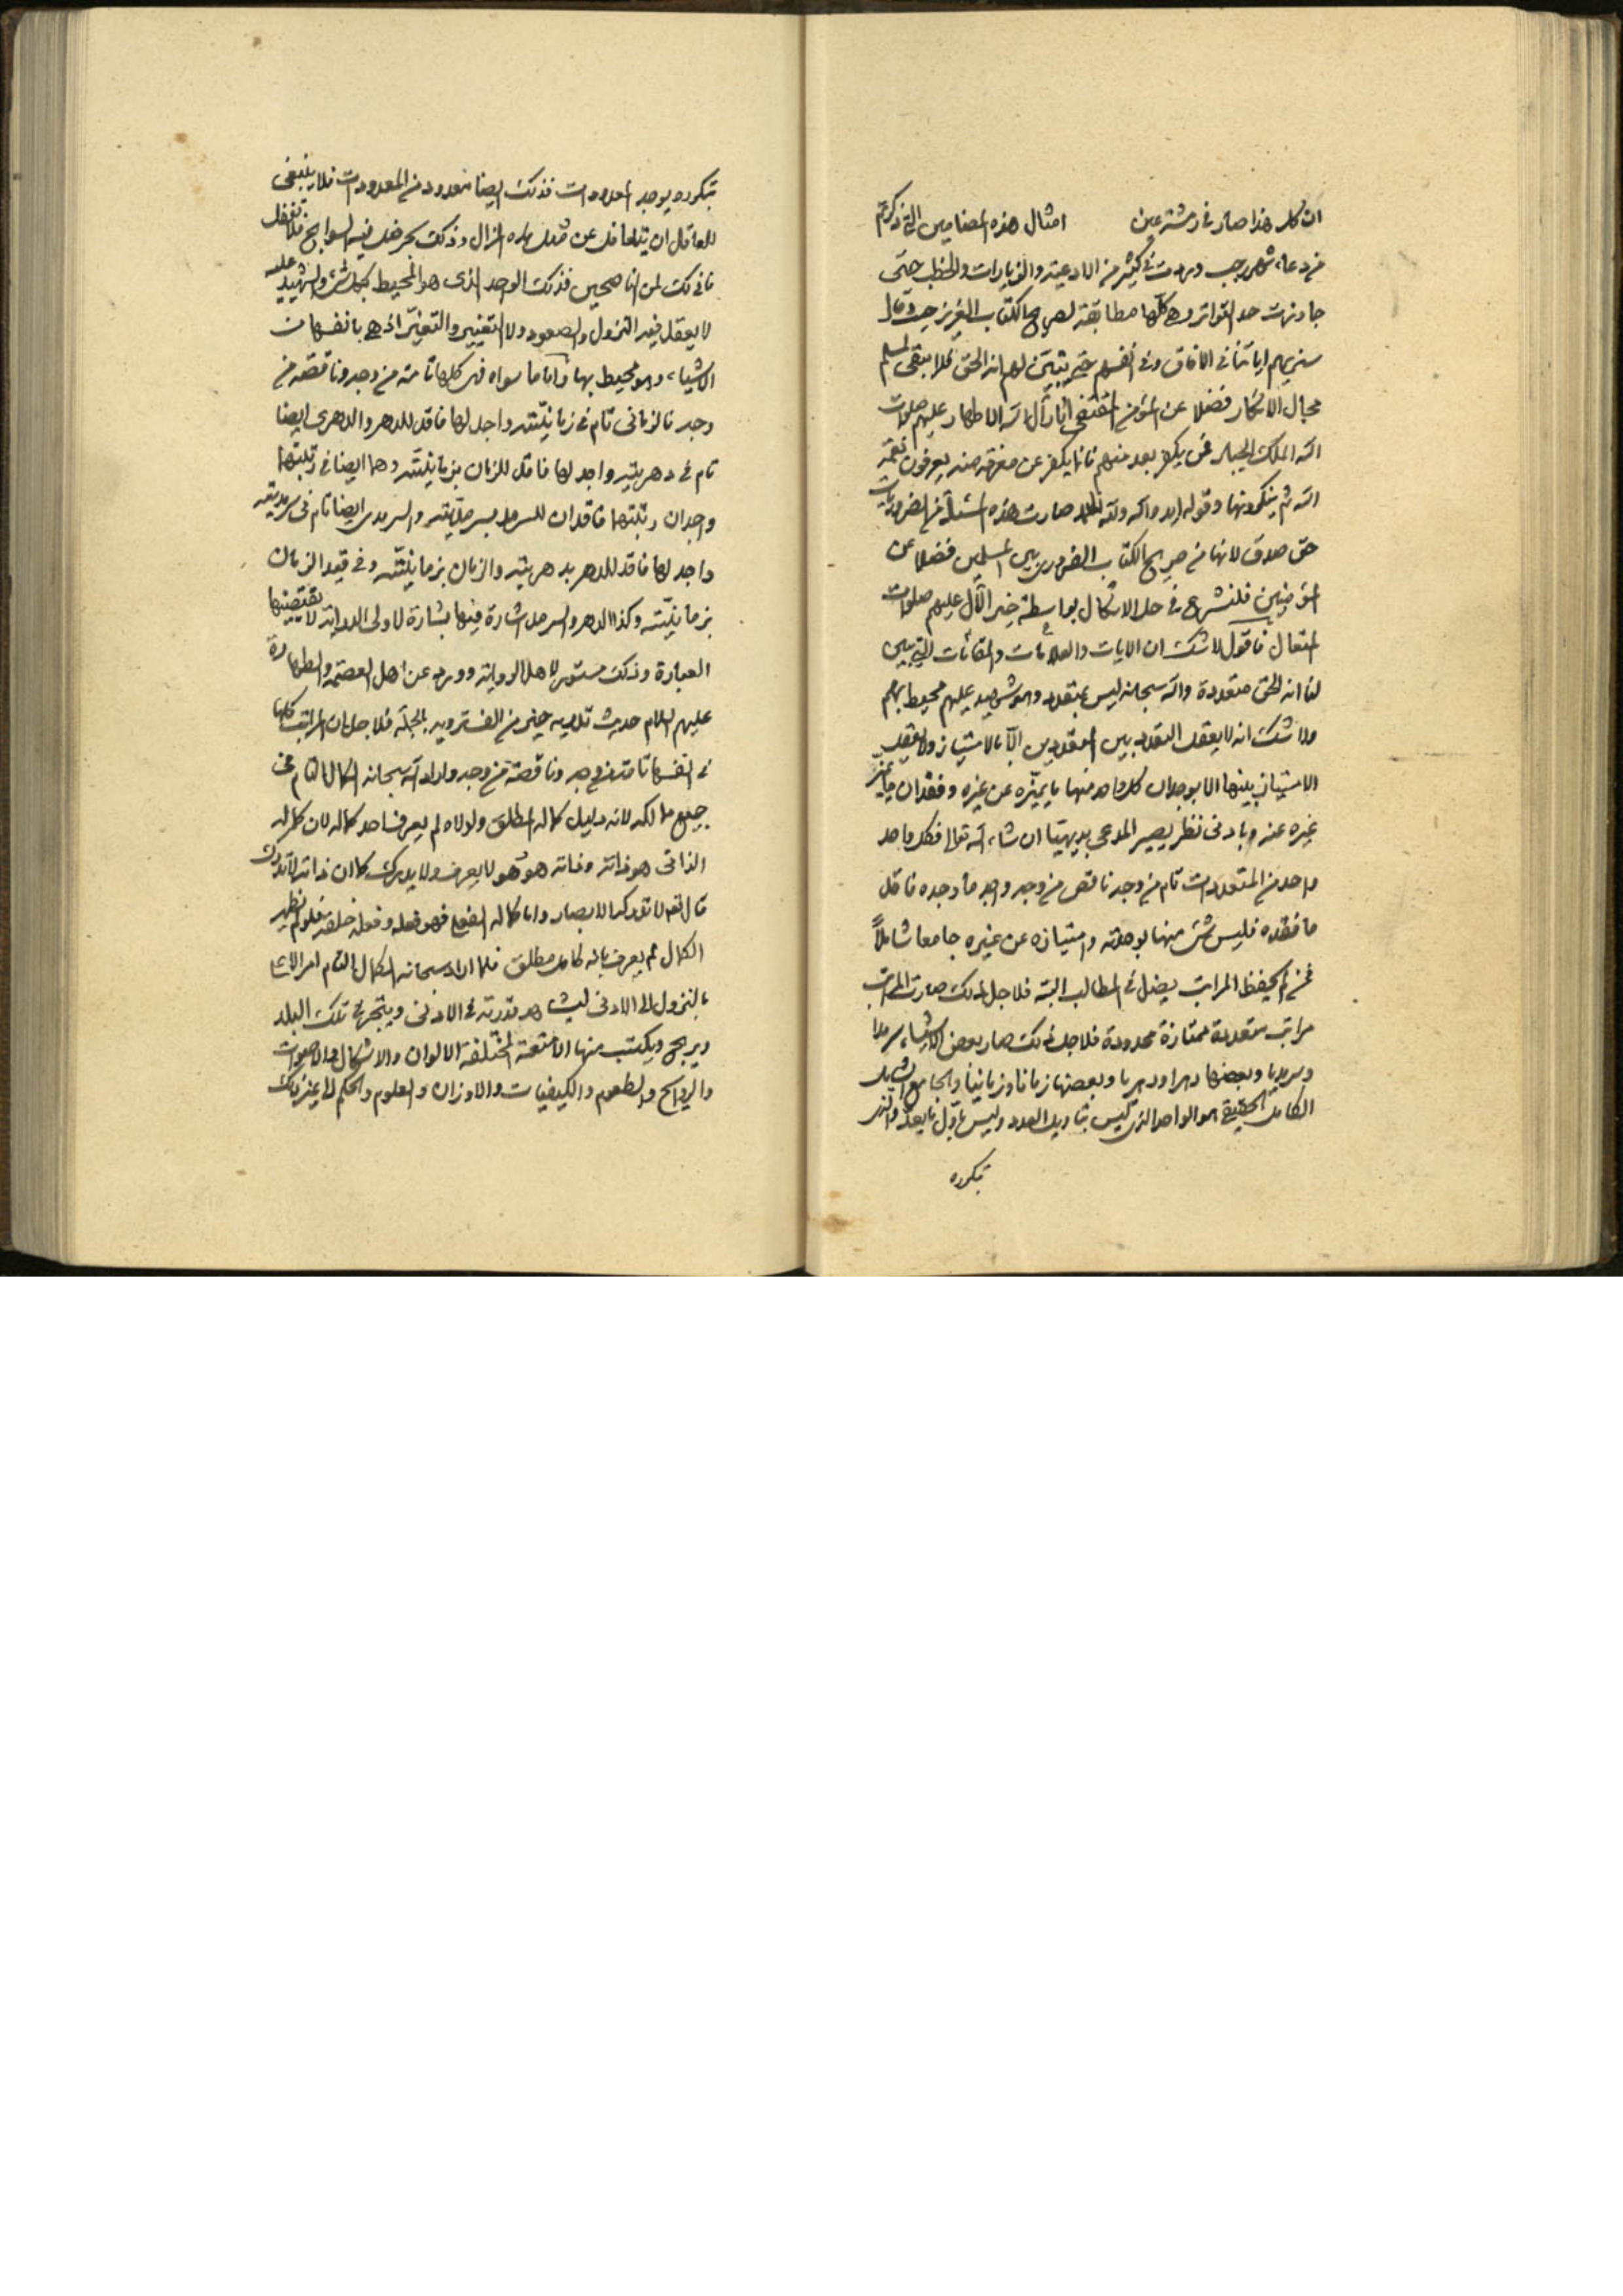 ان كله هذا صار في رشته عين امثال هذه المضامين التي ذكرتم
من دعاء شهر رجب وردت في كثير من الادعية والزيارات والخطب حتى
جاوزت حد التواتر وهي كلها مطابقة لصريح الكتاب العزيز حيث قال
سنريهم اياتنا في الافاق وفي أنفسهم حتى يتبين لهم انه الحق فلا يبقى لمسلم
مجال الانكار فضلا عن المؤمن المقتفي اثار آل الله الاطهار عليهم صلوات
الله الملك الجبار فمن يكفر بعد منهم فانما يكفر عن معرفة منه يعرفون نعمة
الله ثم ينكرونها وقوله ولله صارت هذه المسئلة من الضروريات
حق صدق لانها من صريح الكتاب الضروري بين المسلمين فضلا عن
المؤمنين فلنشرع في حل الاشكال بواسطة خير الآل عليهم صلوات
المتعال فاقول لا شك ان الايات والعلامات والمقامات التي تبين
لنا انه الحق متعددة والله سبحانه ليس بمتعدد وهو شهيد عليهم محيط بهم
ولا شك انه لا يعقل التعدد بين المتعددين الا بالامتياز ولا يعقل
الامتياز بينها الا بوجدان كل واحد منها ما يميزه عن غيره وفقدان ما يميز
غيره عنه وبادنى نظر يصير المدعى بديهيا ان شاء الله تعالى فكل واحد
واحد من المتعددات تام من وجه ناقص من وجه واجد ما وجده فاقد
ما فقده فليس شئ منها بوحدته وامتيازه عن غيره جامعا شاملاً
فمن لم يحفظ المراتب يضل في المطالب البتة فلاجل ذلك صارت المراتب
مراتب متعددة ممتازة محدودة فلاجل ذلك صار بعض الاشياء سرمدا
وسرمديا وبعضها دهرا ودهريا وبعضها زمانا وزمانيا والجامع الشامل
الكامل الحقيقي هو الواحد الذي ليس بتاويل العدد وليس باول ما يعد والذي
بتكرره
بتكرره يوجد المعدودات فذلك ايضا معدود من المعدودات فلا ينبغي
للعاقل ان يتغافل عن مثل هذه المزال وذلك بحر ضل فيه السوابح فلا تغفل
فاني لك لمن الناصحين فذلك الواحد الذي هو المحيط بكل شئ والشهيد عليه
لا يعقل فيه النزول والصعود ولا التغيير والتغيّر اذ هي بانفسها من
الاشياء وهو محيط بها واما ما سواه فهي كلها تامة من وجه وناقصة من
وجه فالزماني تام في زمانيته واجد لها فاقد للدهر والدهري ايضا
تام في دهريته واجد لها فاقد للزمان بزمانيته وهما ايضا في رتبتهما
واجدان رتبتهما فاقدان للسرمد بسرمديته والسرمدي ايضا تام في سرمديته
واجد لها فاقد للدهر بدهريته والزمان بزمانيته وفي قيد الزمان
بزمانيته وكذا الدهر والسرمد اشارة فيها بشارة لاولى الدراية لا يقتضيها
العبارة وذلك مستور لاهل الرواية وورد عن اهل العصمة والطهارة
عليهم السلام حديث تدريه خير من الف ترويه بالجملة فلاجل ان المراتب كلها
في انفسها تامة من وجه وناقصة من وجه واراد الله سبحانه الكمال التام في
جميع ما لكه لانه دليل كماله المطلق ولولاه لم يعرف احد كماله لان كماله
الذاتي هو ذاته وذاته هو هو لا يعرف ولا يدرك كما ان ذاته لا تدرك
قال تعالى لا تدركه الابصار واما كماله فهو فعله وفعله خلقه فلو لم يظهر
الكمال لم يعرف بانه كامل مطلق فلما اراد سبحانه الكمال التام امر الاعلى
بالنزول الى الادنى ليشاهد قدرته في الادنى ويتجر في تلك البلد
ويربح ويكتسب منها الامتعة المختلفة الالوان والاشكال والاصوات
والروايح والطعوم والكيفيات والاوزان والعلوم والحكم الى غير ذلك